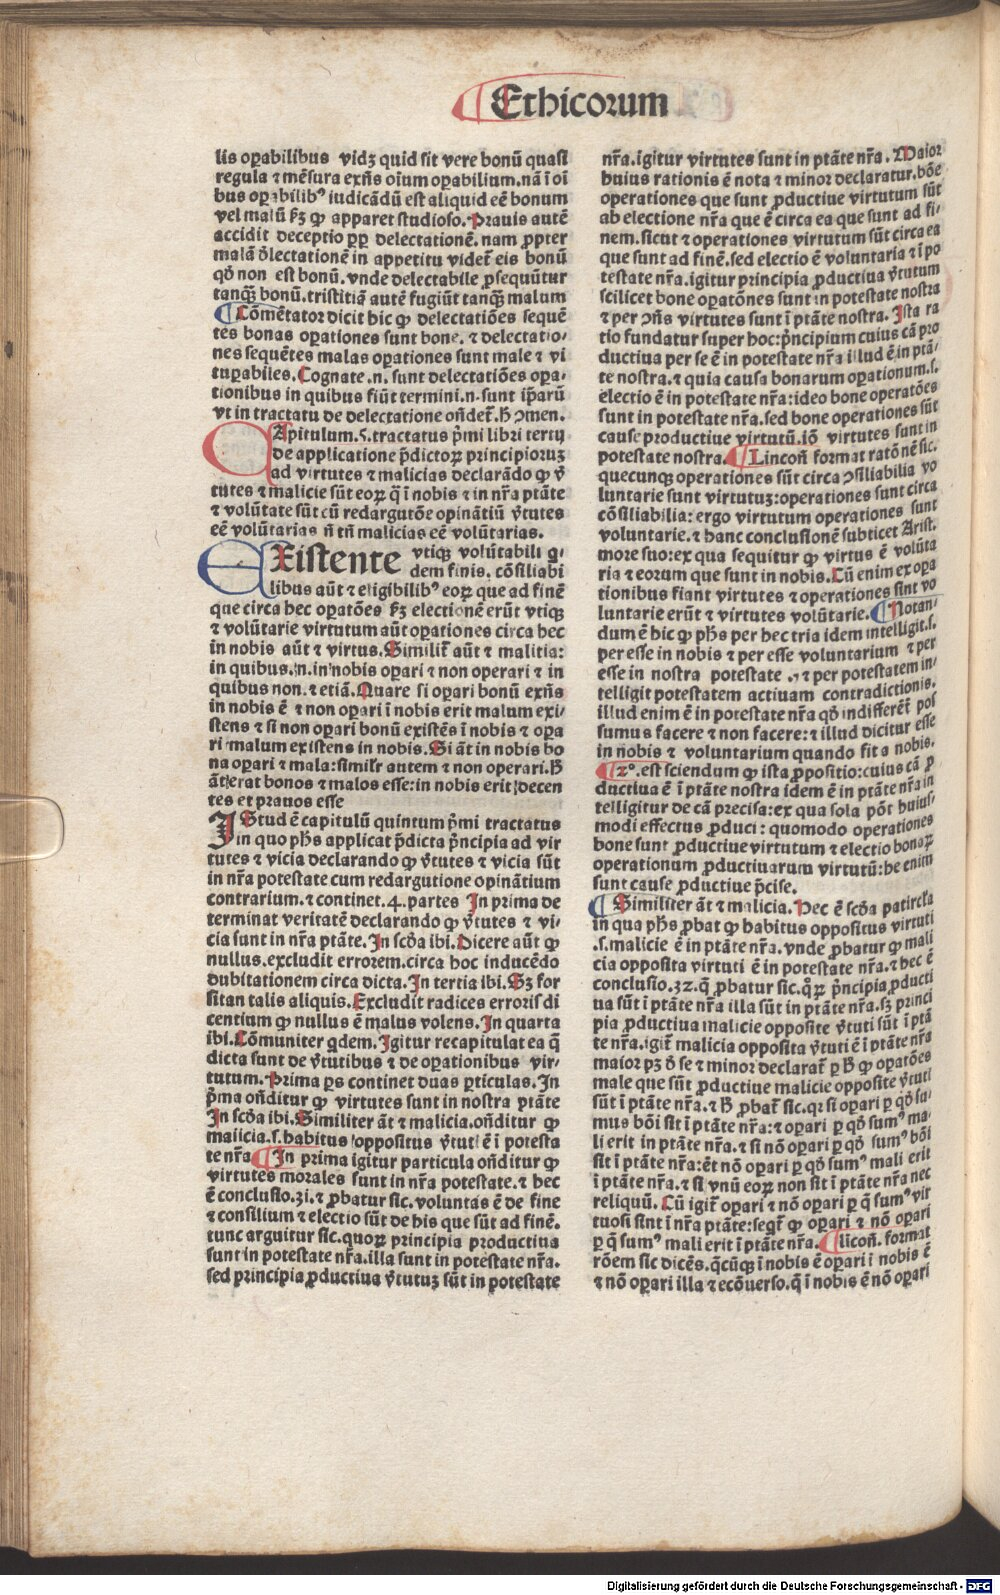 Ethicorum
lis oꝑabilibus vidꝫ quid sit vere bonū quasi
regula ⁊ mēsura exn̄s oīum oꝑabilium.nā ī oī
bus oꝑabilibꝰ iudicādū est aliquid eē bonum
vel malū ẜm ꝙ apparet studioso.Prauis autē
accidit deceptio ꝓpꝑ delectationē.nam ꝓpter
malā dᵒlectationē in appetitu videt᷑ eis bonū
qd̓ non est bonū.vnde delectabile ꝓsequūtur
tanq̄ꝫ bonū.tristitiā autē fugiūt tanq̄ꝫ malum
¶Cōmētator dicit hic ꝙ delectatiōes sequē
tes bonas oꝑationes sunt bone.⁊ delectatio-
nes sequētes malas oꝑationes sunt male ⁊ vi
tuꝑabiles.Cognate.n.sunt delectatiōes oꝑa-
tionibus in quibus fiūt termini.n.sunt ip̄arū
vt in tractatu de delectatione on̄det᷑.h̓ ↄmen.
CApitulum.5.tractatus p̄mi libri tertij
de applicatione p̄dictoꝝ principiorum
ad virtutes ⁊ malicias declarādo ꝙ v̓
tutes ⁊ malicie sūt eoꝝ q̄ ī nobis ⁊ in nr̄a ptāte
⁊ volūtate sūt cū redargutōe opinātiū v̓tutes
eē volūtarias n̄ tn̄ malicias eē volūtarias.
EXistente vtiqꝫ volūtabili q-
dem finis.cōsiliabi
libus aūt ⁊ eligibilibꝰ eoꝝ que ad finē
que circa hec oꝑatōes ẜm electionē erūt vtiqꝫ
⁊ volūtarie virtutum aūt oꝑationes circa hec
in nobis aūt ⁊ virtus.Similit᷑ aūt ⁊ malitia:
in quibus.n.in nobis oꝑari ⁊ non operari ⁊ in
quibus non.⁊ etiā.Quare si oꝑari bonū exn̄s
in nobis ē ⁊ non oꝑari ī nobis erit malum exi-
stens ⁊ si non oꝑari bonū existēs ī nobis ⁊ oꝑa
ri malum existens in nobis.Si āt in nobis bo
na oꝑari ⁊ mala:simil̓r autem ⁊ non operari.h̓
āt erat bonos ⁊ malos esse:in nobis erit decen
tes et prauos esse
IStud ē capitulū quintum p̄mi tractatus
in quo ph̄s applicat p̄dicta p̄ncipia ad vir
tutes ⁊ vicia declarando ꝙ v̓tutes ⁊ vicia sūt
in nr̄a potestate cum redargutione opinātium
contrarium.⁊ continet.4.partes In prima de
terminat veritatē declarando ꝙ v̓tutes ⁊ vi-
cia sunt in nr̄a ptāte.In scd̓a ibi.Dicere aūt ꝙ
nullus.excludit errorem.circa hoc inducēdo
dubitationem circa dicta.In tertia ibi.Sꝫ for
sitan talis aliquis.Excludit radices erroris di
centium ꝙ nullus ē malus volens.In quarta
ibi.Cōmuniter qdem.Igitur recapitulat ea q̄
dicta sunt de v̓tutibus ⁊ de oꝑationibus vir-
tutum.Prima ꝑs continet duas ꝑticulas.In
p̄ma on̄ditur ꝙ virtutes sunt in nostra ptāte
In scd̓a ibi.Similiter āt ⁊ malicia.on̄ditur ꝙ
malicia.s.habitus oppositus v̓tuti ē ī potesta
te nr̄a ¶In prima igitur particula on̄ditur ꝙ
virtutes morales sunt in nr̄a potestate.⁊ hec
ē conclusio.31.⁊ ꝓbatur sic.voluntas ē de fine
⁊ consilium ⁊ electio sūt de his que sūt ad finē.
tunc arguitur sic.quoꝝ principia productiua
sunt in potestate nr̄a.illa sunt in potestate nr̄a.
sed principia ꝓductiua v̓tutuꝫ sūt in potestate
nr̄a.igitur virtutes sunt in ptāte nr̄a.Maior
huius rationis ē nota ⁊ minor declaratur.bōe
operationes que sunt ꝓductiue virtutum sūt
ab electione nr̄a que ē circa ea que sunt ad fi-
nem.sicut ⁊ operationes virtutum sūt circa ea
que sunt ad finē.sed electio ē voluntaria ⁊ ī po
testate nr̄a.igitur principia ꝓductiua v̓tutum
scilicet bone oꝑatōnes sunt in potestate nostra
⁊ per ↄn̄s virtutes sunt ī ptāte nostra.Ista ra
tio fundatur super hoc:p̄ncipium cuius cā pro
ductiua per se ē in potestate nr̄a illud ē in ptā-
te nostra.⁊ quia causa bonarum oꝑationum.s.
electio ē in potestate nr̄a:ideo bone operatōes
sunt in potestate nr̄a.sed bone operationes sūt
cause productiue virtutū.iō virtutes sunt in
potestate nostra.¶Lincoñ format ratōnē sic.
quecunqꝫ operationes sūt circa ↄsiliabilia vo
luntarie sunt virtutuꝫ:operationes sunt circa
cōsiliabilia:ergo virtutum operationes sunt
voluntarie.⁊ hanc conclusionē subticet Arist.
more suo:ex qua sequitur ꝙ virtus ē volūta
ria ⁊ eorum que sunt in nobis.Cū enim ex oꝑa
tionibus fiant virtutes ⁊ operationes sint vo
luntarie erūt ⁊ virtutes volūtarie.¶Notan-
dum ē hic ꝙ ph̄s per hec tria idem intelligit.s.
per esse in nobis ⁊ per esse voluntarium ⁊ per
esse in nostra potestate.⁊ per potestatem in-
telligit potestatem actiuam contradictionis.
illud enim ē in potestate nr̄a qd̓ indifferēt᷑ pos
sumus facere ⁊ non facere:⁊ illud dicitur esse
in nobis ⁊ voluntarium quando fit a nobis.
¶2°.est sciendum ꝙ ista ꝓpositio:cuius cā ꝓ
ductiua ē ī ptāte nostra idem ē in ptāte nr̄a in
telligitur de cā precisa:ex qua sola pōt huius-
modi effectus ꝓduci:quomodo operationes
bone sunt ꝓductiue virtutum ⁊ electio bonaꝝ
operationum ꝓductiuarum virtutū:he enim
sunt cause ꝓductiue p̄cise.
¶Similiter āt ⁊ malicia.Hec ē scd̓a paticl̓a
in qua ph̄s ꝓbat ꝙ habitus oppositus virtuti
.s.malicie ē in ptāte nr̄a.vnde ꝓbatur ꝙ mali
cia opposita virtuti ē in potestate nr̄a.⁊ hec ē
conclusio.32.q̄ ꝓbatur sic.qꝝ p̄ncipia ꝓducti
ua sūt ī ptāte nr̄a illa sūt in ptāte nr̄a.sꝫ princi
pia ꝓductiua malicie opposite v̓tuti sūt ī ptā
te nr̄a.igit᷑ malicia opposita v̓tuti ē ī ptāte nr̄a
maior pꝫ d̓ se ⁊ minor declarat᷑ ꝑ h̓ ꝙ oꝑatōes
male que sūt ꝓductiue malicie opposite v̓tuti
sūt ī ptāte nr̄a.⁊ h̓ ꝓbat᷑ sic.qꝛ si oꝑari ꝑ qd̓ su-
mus bōi sit ī ptāte nr̄a:⁊ oꝑari ꝑ qd̓ sumꝰ ma-
li erit in ptāte nr̄a.⁊ si nō oꝑari ꝑ qd̓ sumꝰ bōi
sit ī ptāte nr̄a:ēt nō oꝑari ꝑ qd̓ sumꝰ mali erit
ī ptāte nr̄a.⁊ si vnū eoꝝ non sit ī ptāte nr̄a nec
reliquū.Cū igit᷑ oꝑari ⁊ nō oꝑari ꝑ q̄ sumꝰ vir
tuosi sint ī nr̄a ptāte:seqt᷑ ꝙ oꝑari ⁊ nō oꝑari
ꝑ q̄ sumꝰ mali erit ī ptāte nr̄a.¶licoñ.format
rōem sic dicēs.q̄cūqꝫ ī nobis ē oꝑari ī nobis ē
⁊ nō oꝑari illa ⁊ ecōuerso.q̄ ī nobis ē nō oꝑari
Digitalisierung gefördert durch die Deutsche Forschungsgemeinschaft - DFG